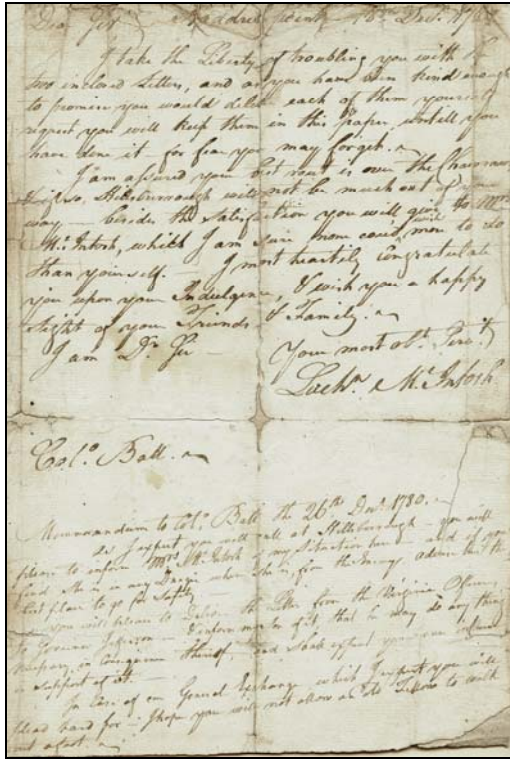 Dear Sir Haddrels point 26th Decr. 1780
I take the Liberty of troubling you with
two inclosed Letters, and as you have been kind enough
to promise you would deliver each of them yourself
request you will keep them in this paper, untill you
have done it for fear you may forget.
I am assured your best rout is over the
if so, Hillsborough will not be much out of your
way — besides the satisfaction you will give to Mrs
McIntosh, which I am sure none coud wish more to do
than yourself. — I most heartily Congratulate
you upon your Indulgence, & wish you a happy
sight of your Friends & Family.
I am Dr Sir
Your most obt. Servt.
Lachn. McIntosh
Colo. Ball.
Memorandum to Colo. Ball the 26th Decr. 1780.
As I expect you will call at Hillsborough — you will
please to inform Mrs. McIntosh of my Situation here — and if you
find she is in any Danger where she is, from the Enemy, advise her the
best place to go for safety
you will please to Deliver the Letter from the Virginia Officers
to Govenor Jefferson — & inform me of it, that he may do any thing
necessary in consequence thereof, and shall expect your influence
in support of it.
In Case of an General Exchange which I expect you will
plead hard for — I hope you will not allow an old Fellow to walk